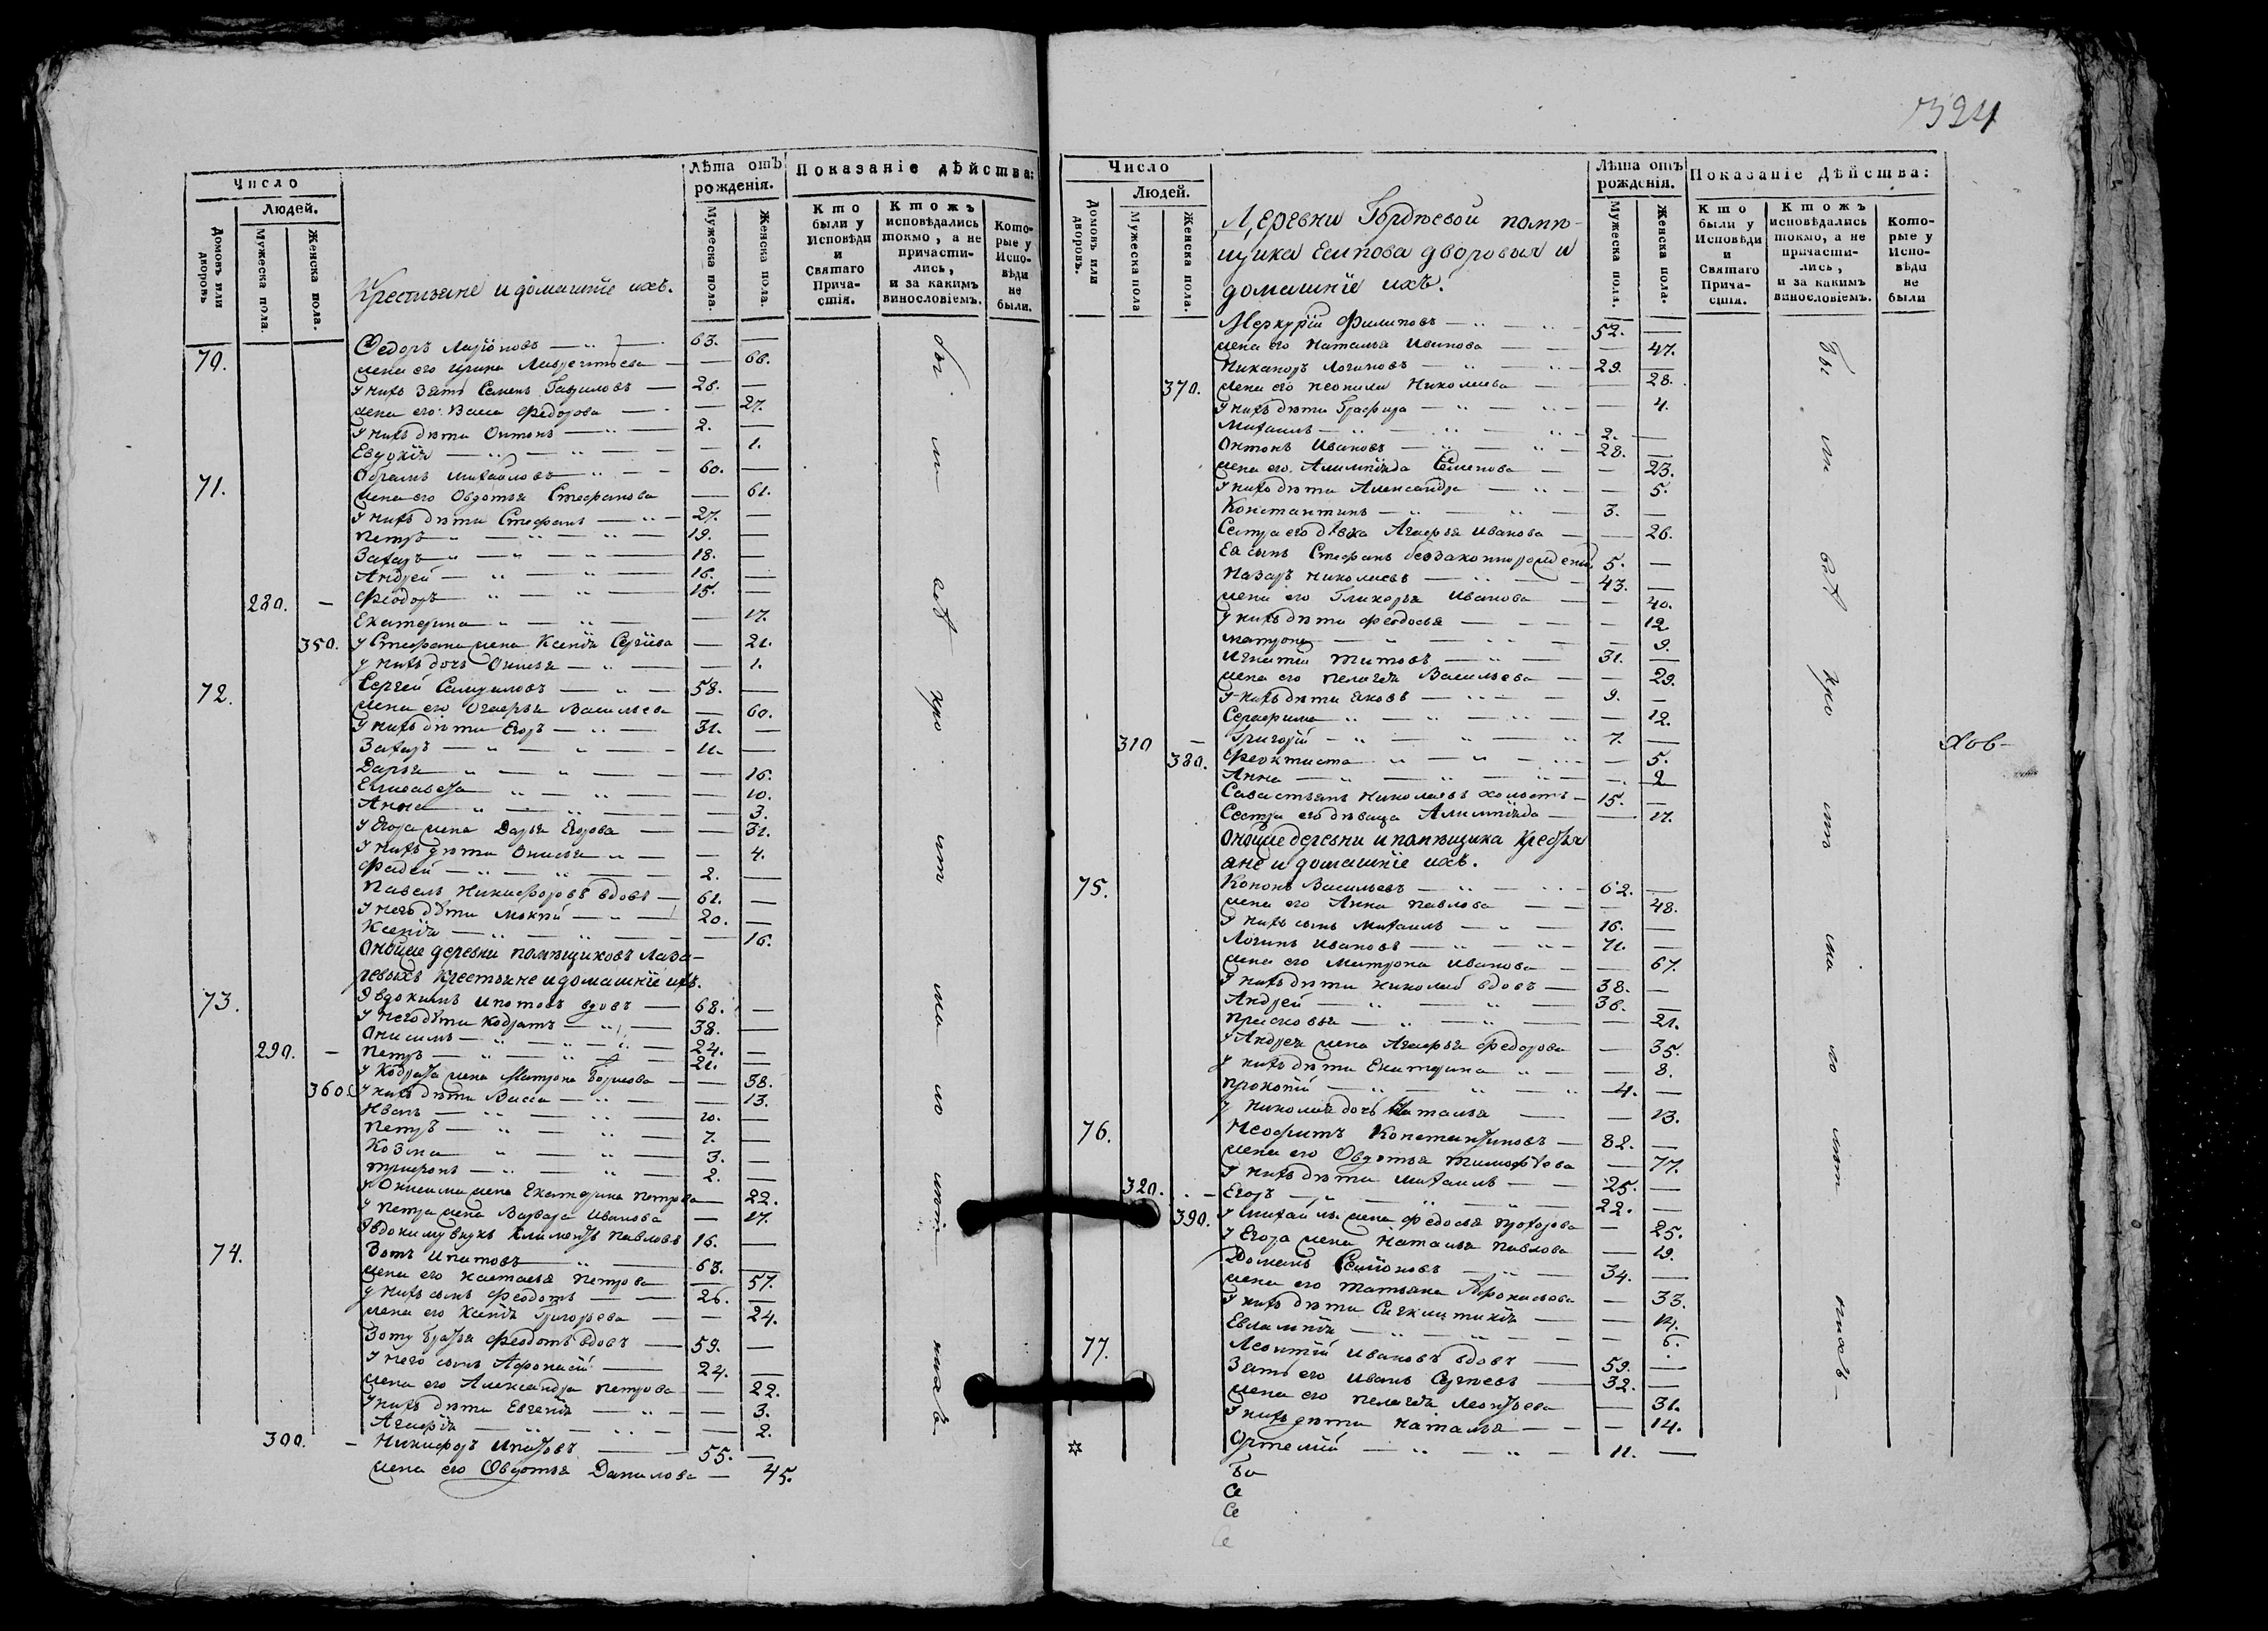 Число
Людей.
Домовъ или дворовъ
Мужеска пола.
Женска пола.
Крестьяне и домашнїе ихъ.
Лѣта отъ рожденїя.
Мужеска пола.
Женска пола.
Показанїе дѣйства:
Кто были у Исповѣди и Святаго Причастїя.
Ктожъ исповѣдались токмо, а не причастились, и за какимъ винословїемъ.
Которые у Исповѣди не были.
70. Федоръ Ларїоновъ — 63. —
жена его Ирина Лаврентьева — 66.
У нихъ зять Семенъ Гавриловъ — 28. —
жена его Васса Федорова — 27.
У нихъ дѣти Антонъ — 2. —
Евдокїя — 1.
71. Абрамъ Михайловъ — 60. —
жена его Овдотья Стефанова — 61.
У нихъ дѣти Стефанъ — 27. —
Петръ — 19. —
Захаръ — 18. —
Андрей — 16. —
280. — Феодоръ — 15. —
Екатерина — 17.
350. У Стефана жена Ксенїя Сергїева — 21.
у нихъ дочь Онисья — 1.
72. Сергей Самуиловъ — 58. —
жена его Агафья Васильева — 60.
У нихъ дѣти Егоръ — 31. —
Захаръ — 11. —
Дарья — 16.
Елисавета — 10.
Анна — 3.
У Егора жена Дарья Егорова — 31.
У нихъ дѣти Онисья — 4.
Фадей — 2. —
Павелъ Никифоровъ вдовъ — 61. —
У него дѣти Мокїй — 20. —
Ксенїя — 16.
Оной же деревни помѣщиковъ Лазаревыхъ крестьяне и домашнїе ихъ.
73. Эвдокимъ Ипатовъ вдовъ — 68. —
У него дѣти Кодратъ — 38. —
Онисимъ — 24. —
290. — Петръ — 21. —
У Кодрата жена Матрона Борисова — 38.
360. У нихъ дѣти Васса — 13.
Иванъ — 10. —
Петръ — 7. —
Козма — 3. —
Трифонъ — 2. —
У Онисима жена Екатерина Петрова — 22.
У Петра жена Варвара Иванова — 17.
Эвдокиму внукъ Климентъ Павловъ 16. —
74. Зотъ Ипатовъ — 63. —
жена его Настасья Петрова — 57.
У нихъ сынъ Феодотъ — 26. —
жена его Ксенїя Григорьева — 24.
Зоту братья Феодотъ вдовъ — 59. —
У него сынъ Афонасїй — 24. —
жена его Александра Петрова — 22.
У нихъ дѣти Евгенїя — 3.
Агафїя — 2.
300. — Никифоръ Ипатовъ — 55. —
жена его Овдотья Данилова — 45.
1324
Число
Людей.
Домовъ или дворовъ.
Мужеска пола
Женска пола.
Деревни Гордѣевой помѣщика Есипова дворовыя и домашнїе ихъ.
Лѣта отъ рожденїя.
Мужеска пола.
Женска пола.
Показанїе Дѣйства:
Кто были у Исповѣди и Святаго Причастїя.
Ктожъ исповѣдались токмо, а не причастились, и за какимъ винословїемъ.
Которые у Исповѣди не были
Меркурїй Филиповъ — 52. —
жена его Наталья Иванова — 47.
Никаноръ Логиновъ — 29. —
370. жена его Неонила Николаева — 28.
У нихъ дѣти Глафира — 4.
Михаилъ — 2. —
Антонъ Ивановъ — 28. —
жена его Алимпїяда Семенова — 23.
У нихъ дѣти Александра — 5.
Константинъ — 3. —
Сестра его дѣвка Агафья Иванова — 26.
Ея сынъ Стефанъ беззаконнорожденный 5. —
Назаръ Николаевъ — 43. —
жена его Гликерья Иванова — 40.
У нихъ дѣти Феодосья — 12
Матрона — 9.
Игнатїй Титовъ — 31. —
жена его Пелагея Васильева — 29.
У нихъ дѣти Яковъ — 9. —
Серафима — 12.
310 — Григорїй — 7. —
380. Феоктиста — 5.
Анна — 2
Савастьянъ Николаевъ холостъ — 15. —
Сестра его дѣвица Алимпїяда — 17.
Оной же деревни и помѣщика крестьяне и домашнїе ихъ.
75. Кононъ Васильевъ — 62. —
жена его Анна Павлова — 48.
У нихъ сынъ Михаилъ — 16. —
Логинъ Ивановъ — 71. —
жена его Матрона Иванова — 67.
У нихъ дѣти Николай вдовъ — 38. —
Андрей — 36. —
Прасковья — 21.
У Андрея жена Агафья Федорова — 35.
У нихъ дѣти Екатерина — 8.
Прокопїй — 4. —
У Николая дочь Наталья — 13.
76. Неофитъ Константиновъ — 82. —
жена его Овдотья Тимофѣева — 77.
У нихъ дѣти Михаилъ — 25. —
320. — Егоръ — 22. —
390. У Михайлы жена Федосья Прохорова — 25.
У Егора жена Наталья Павлова — 19.
Романъ Семїоновъ — 34. —
жена его Татьяна Афонасьева — 33.
У нихъ дѣти Синклитикїя — 14.
Евлампїя — 6.
77. Леонтїй Ивановъ вдовъ — 59. —
Зять его Иванъ Сергѣевъ — 32. —
жена его Пелагея Леонтьева — 31.
У нихъ дѣти Наталья — 14.
Артемїй — 11. —
Се
Се